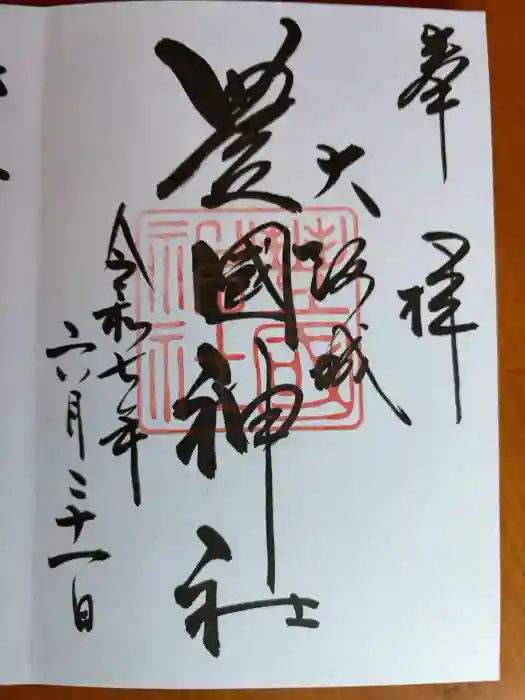 奉拝
大阪城
豊國神社
令和七年
六月二十一日
豊國神社